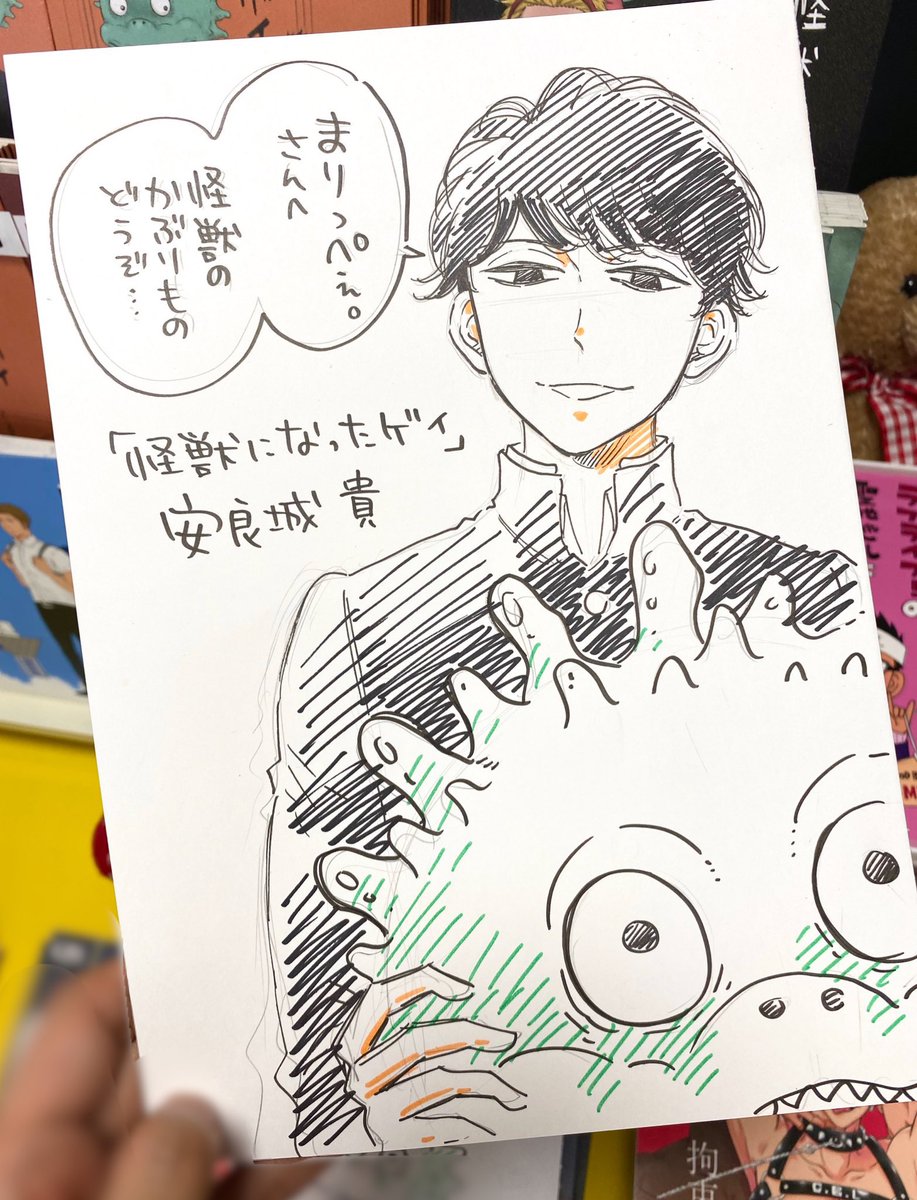 まりっぺぇ。
さんへ
怪獣の
かぶりもの
どうぞ…
「怪獣になったゲイ」
安良城 貴
怪
獣
拘